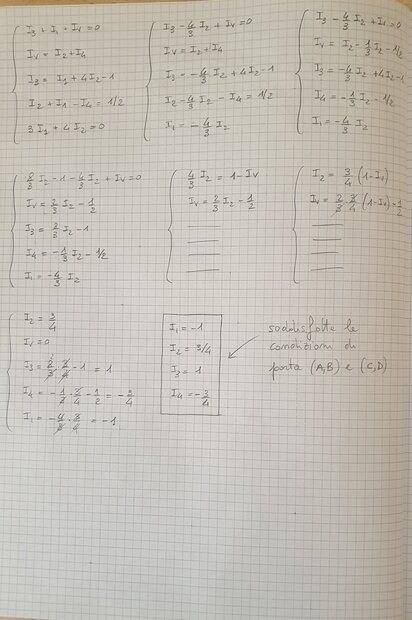 I₃ + I₁ + Iᵥ = 0
Iᵥ = I₂ + I₄
I₃ = I₁ + 4I₂ - 1
I₂ + I₁ - I₄ = 1/2
3I₁ + 4I₂ = 0
I₃ - 4/3 I₂ + Iᵥ = 0
Iᵥ = I₂ + I₄
I₃ = -4/3 I₂ + 4I₂ - 1
I₂ - 4/3 I₂ - I₄ = 1/2
I₁ = -4/3 I₂
I₃ - 4/3 I₂ + Iᵥ = 0
Iᵥ = I₂ - 1/3 I₂ - 1/2
I₃ = -4/3 I₂ + 4I₂ - 1
I₄ = -1/3 I₂ - 1/2
I₁ = -4/3 I₂
8/3 I₂ - 1 - 4/3 I₂ + Iᵥ = 0
Iᵥ = 2/3 I₂ - 1/2
I₃ = 8/3 I₂ - 1
I₄ = -1/3 I₂ - 1/2
I₁ = -4/3 I₂
4/3 I₂ = 1 - Iᵥ
Iᵥ = 2/3 I₂ - 1/2
I₂ = 3/4 (1 - Iᵥ)
Iᵥ = 2/3 · 3/4 (1 - Iᵥ) - 1/2
I₂ = 3/4
Iᵥ = 0
I₃ = 8/3 · 3/4 - 1 = 1
I₄ = -1/3 · 3/4 - 1/2 = -3/4
I₁ = -4/3 · 3/4 = -1
I₁ = -1
I₂ = 3/4
I₃ = 1
I₄ = -3/4
soddisfatte le
condizioni di
porta (A,B) e (C,D)